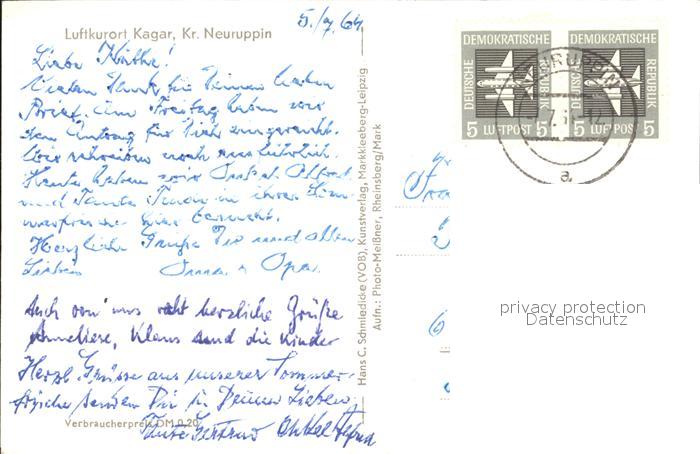 Luftkurort Kagar, Kr. Neuruppin
5./7. 64
Liebe Käthe!
Vielen Dank für Deinen lieben
Brief. Am Freitag haben wir
den Antrag für Dich eingereicht.
Wir schreiben noch ausführlich.
Heute haben wir Onkel Alfred
und Tante Trude in ihrer Som-
merfrische hier besucht.
Herzliche Grüße Dir und allen
Lieben Oma u. Opa.
Auch von uns recht herzliche Grüße
Anneliese, Klaus und die Kinder
Herzl. Grüsse aus unserer Sommer-
frische senden Dir u. Deinen Lieben
Tante Gertrud Onkel Alfred
Verbraucherpreis DM 0,20
Hans C. Schmiedicke (VOB), Kunstverlag, Markkleeberg-Leipzig
Aufn.: Photo-Meißner, Rheinsberg/Mark
DEUTSCHE DEMOKRATISCHE REPUBLIK
5 LUFTPOST 5
DEUTSCHE DEMOKRATISCHE REPUBLIK
5 LUFTPOST 5
NEURUPPIN
a
privacy protection
Datenschutz